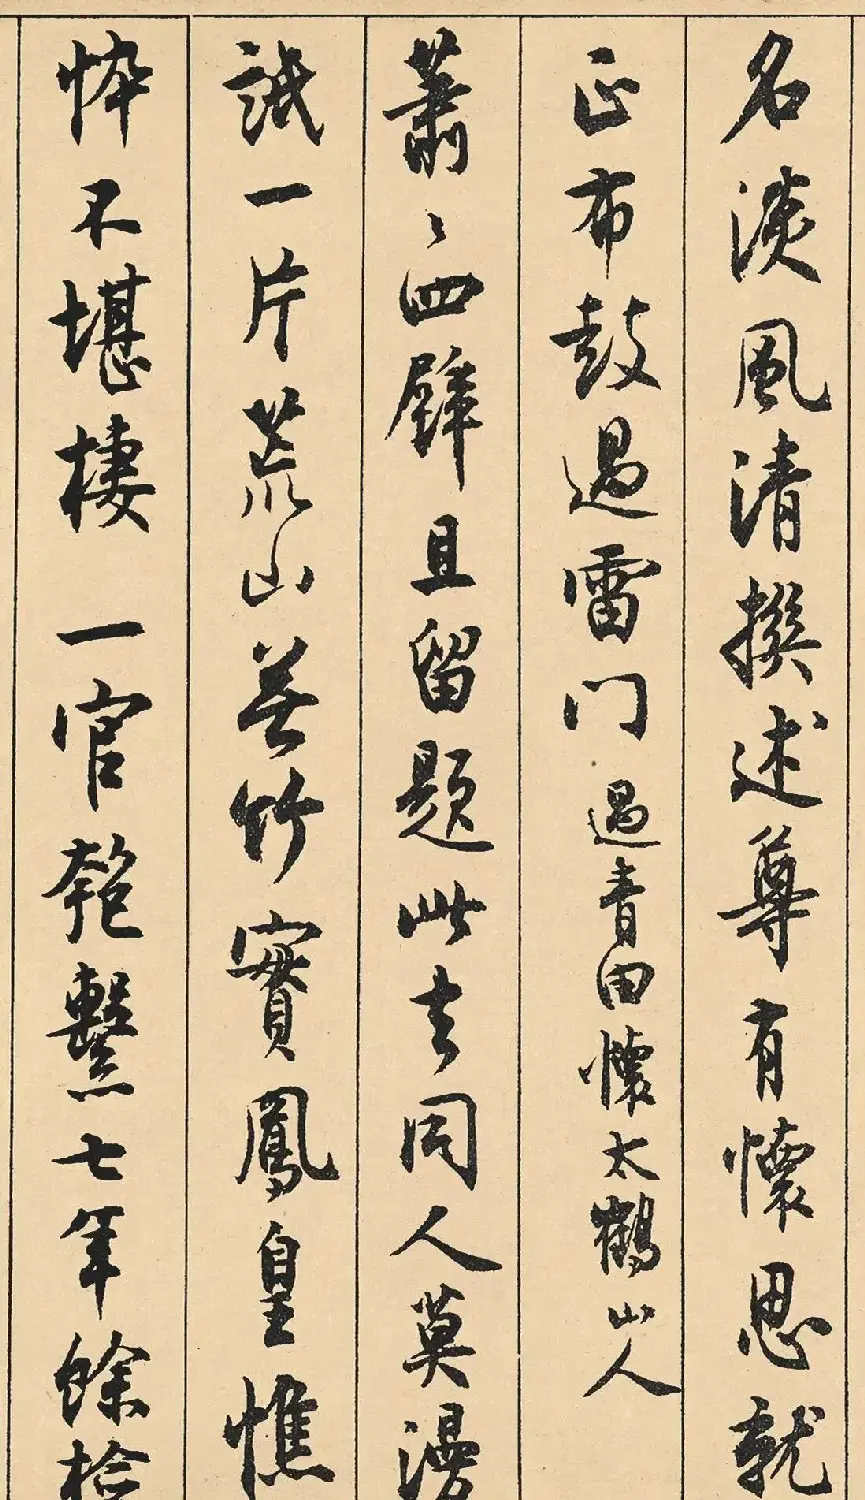 名淡風清撰述尊有懷思就
正布鼓過雷门過青田懷太鶴山人
蕭〻四壁且留題此去同人莫漫
詆一片荒山無竹實鳳皇憔
悴不堪棲一官匏繫七年餘